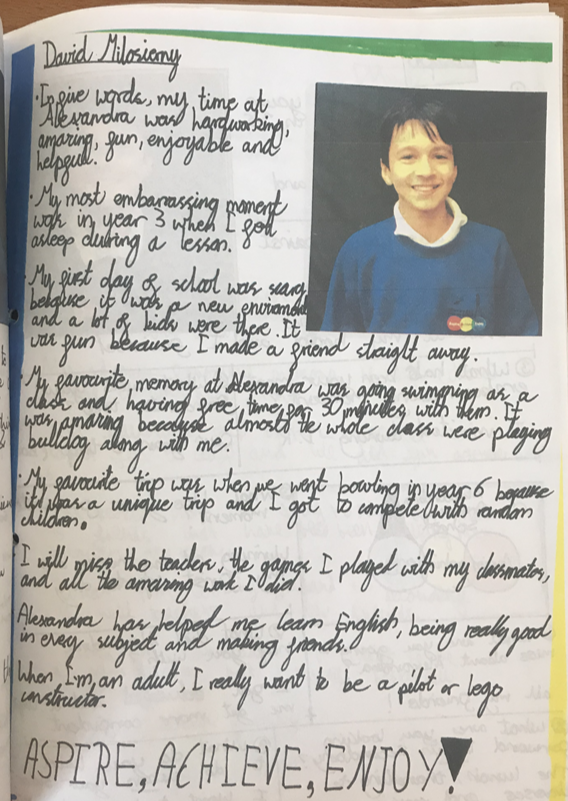 David Milosiemy
• In give words, my time at
Alexandra was hardworking,
amazing, fun, enjoyable and
helpfull.
• My most embarrassing moment
was in year 3 when I fell
asleep during a lesson.
• My first day of school was scary
because it was a new enviroment
and a lot of kids were there. It
was fun because I made a friend straight away.
• My favourite memory at Alexandra was going swimming as a
class and having free time for 30 minutes with them. It
was amazing because almost the whole class were playing
bulldog along with me.
• My favourite trip was when we went bowling in year 6 because
it was a unique trip and I got to compete with random
children.
I will miss the teachers, the games I played with my classmates,
and all the amazing work I did.
Alexandra has helped me learn English, being really good
in every subject and making friends.
When I'm an adult, I really want to be a pilot or lego
constructor.
ASPIRE, ACHIEVE, ENJOY!